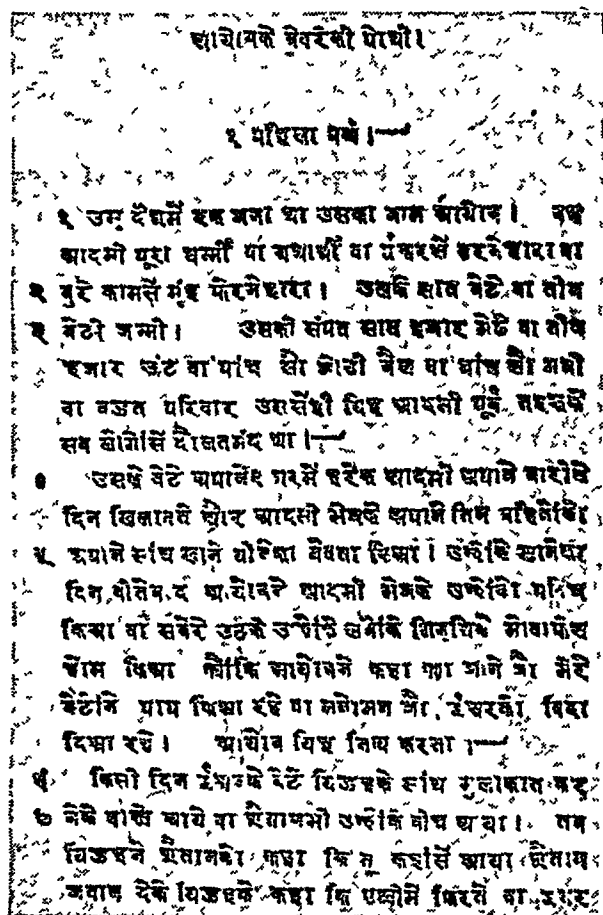 आयोबके बेवरेकी पोथी।
१ पहिला पर्ब्ब।
१ उस देशमें एक जना था उसका नाम आयोब। वह
आदमी पूरा धर्म्मी वा यथार्थी वा ईश्वरसें डरनेहारा वा
२ बुरे कामसें मुंह फेरनेहारा। उसके सात बेटे वा तीन
३ बेटी जन्मी। उसकी संपत सात हजार भेड़ वा तीन
हजार ऊंट वा पांच सौ जोड़ी बैल वा पांच सौ गधी
वा बज्जत परिवार उससेंही यिह आदमी पूर्ब्ब तरफके
सब लोगोंसें दौलतमंद था।
४ उसके बेटे अपने घरमें हरेक आदमी अपने बारीके
दिन खिलानते और आदमी भेजके अपने तिन बहिनोंको
५ अपने सांथ खाने पीनेका नेवता किआ। उन्होंके खानेका
दिन बीतेपर आयोबने आदमी भेजके उन्होंको पवित्र
किआ वा सबेरे उठके उन्होंके सभोंके गिनतिमें
होम किआ क्योंकि आयोबने कहा क्या जाने जो मेरे
बेटोंने पाप किआ रहे वा मनेमन जो ईश्वरको बिदा
किआ रहे। आयोब यिह नित्य करता।
६ किसी दिन ईश्वरके बेटे यिहूहके सांथ मुलाकात कर
७ नेके वास्ते आये वा शैतानभी उन्होंके बीच आया। तब
यिहूहने शैतानको कहा कि तू कहांसें आया शैतान
जवाब देके यिहूहको कहा कि एथीमें फिरते वा उधर